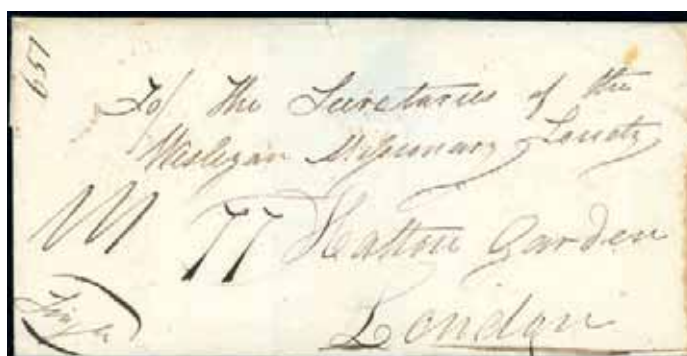 651
To/ The Secretaries of the
Wesleyan Missionary Society
77 Hatton Garden
London